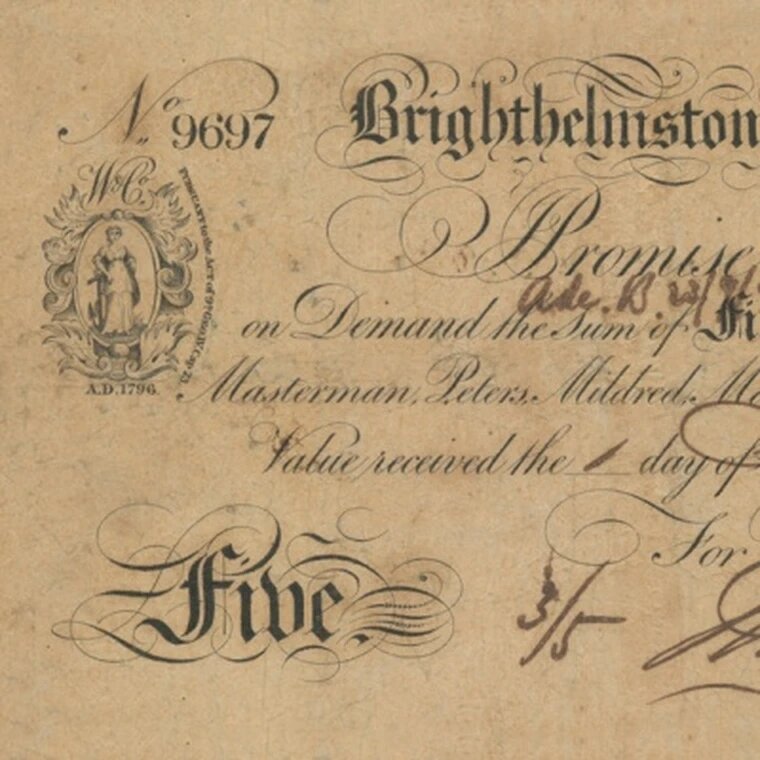 No 9697
Brighthelmston
W & Co.
PURSUANT to the Act of 9th Geo. IV Cap 23
A.D. 1796.
Promise
on Demand the Sum of Fi
Masterman, Peters, Mildred, Ma
Value received the 1 day of
For
Five
3/5